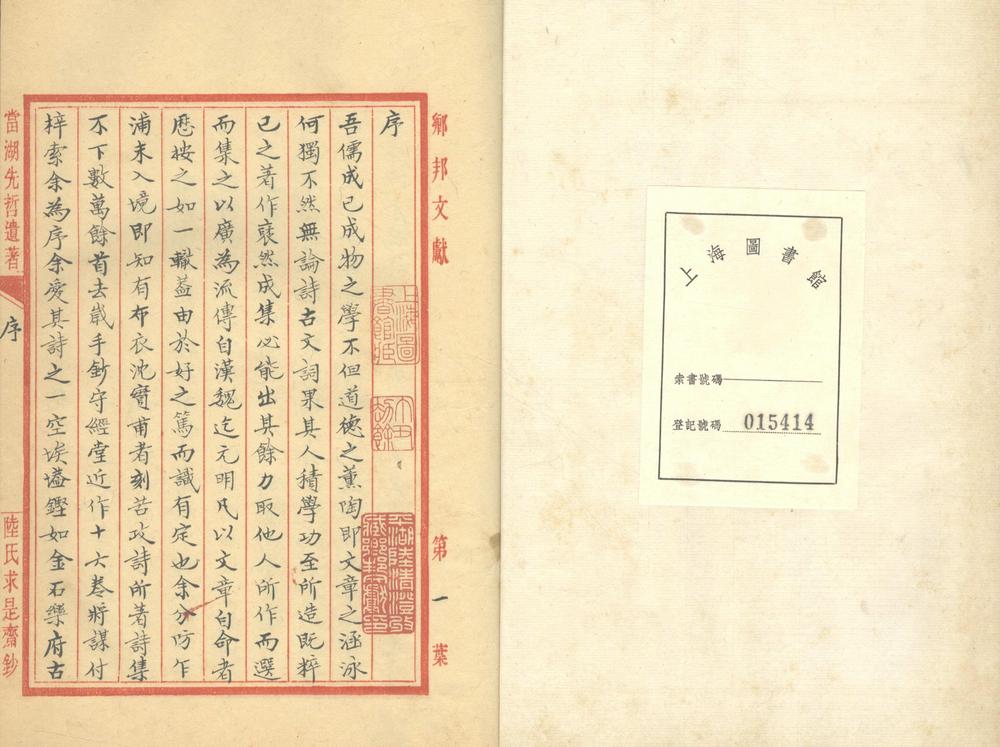 上海圖書館
索書號碼
登記號碼 015414
鄉邦文獻
第一葉
序
上海圖
書館藏
劫餘
吾儒成已成物之學不但道德之薰陶即文章之涵泳
何獨不然無論詩古文詞果其人積學功至所造既粹
已之著作裒然成集必能出其餘力取他人所作而選
而集之以廣為流傳自漢魏迄元明凡以文章自命者
歷按之如一轍蓋由於好之篤而識有定也余分防乍
浦未入境即知有布衣沈實甫者刻苦攻詩所著詩集
不下數萬餘首去歲手鈔守經堂近作十六卷將謀付
梓索余為序余愛其詩之一空埃壒鏗如金石樂府古
當湖先哲遺著
序
陸氏求是齋鈔